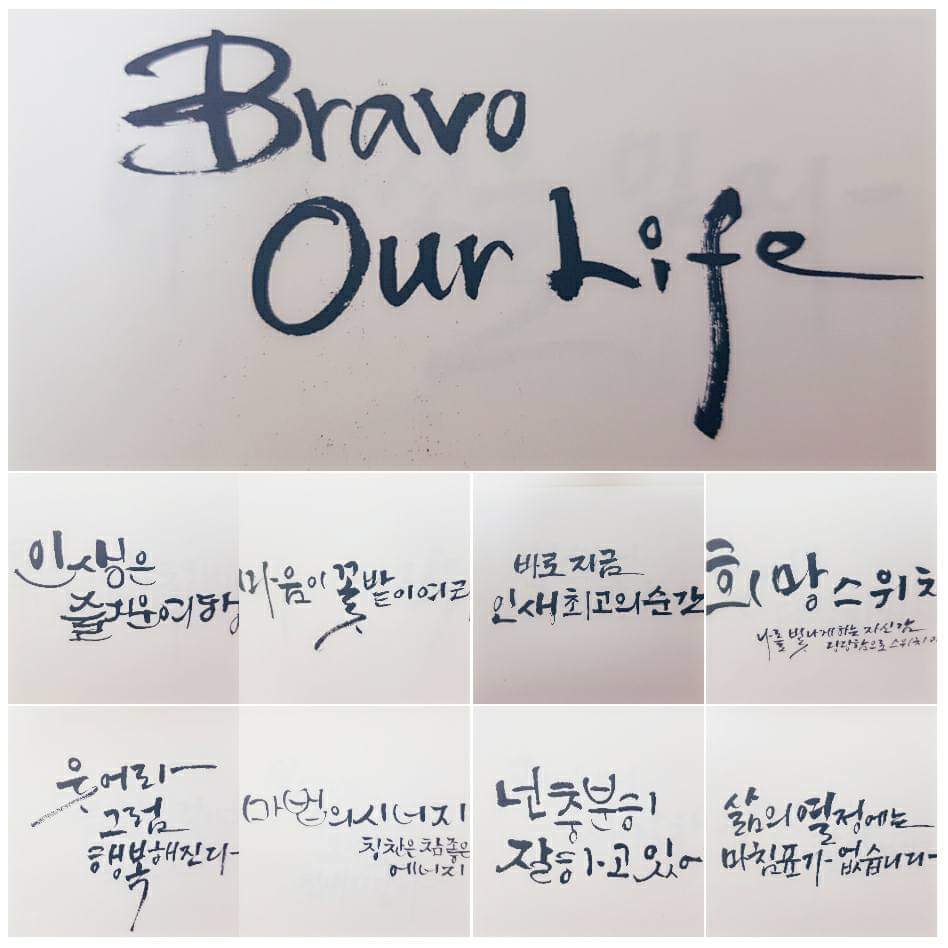 Bravo
Our Life
인생은
즐거운여행
마음이 꽃밭이어라
바로 지금
인생최고의순간
희망스위치
나를 빛나게하는 자신감
당당함으로 스위치
웃어라
그럼
행복해진다
마법의시너지
칭찬은참좋은
에너지
넌충분히
잘하고있어
삶의열정에는
마침표가없습니다